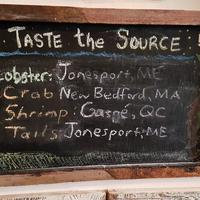 TASTE the SOURCE :
Lobster: Jonesport, ME
Crab New Bedford, MA
Shrimp: Gaspé, QC
Tails: Jonesport, ME